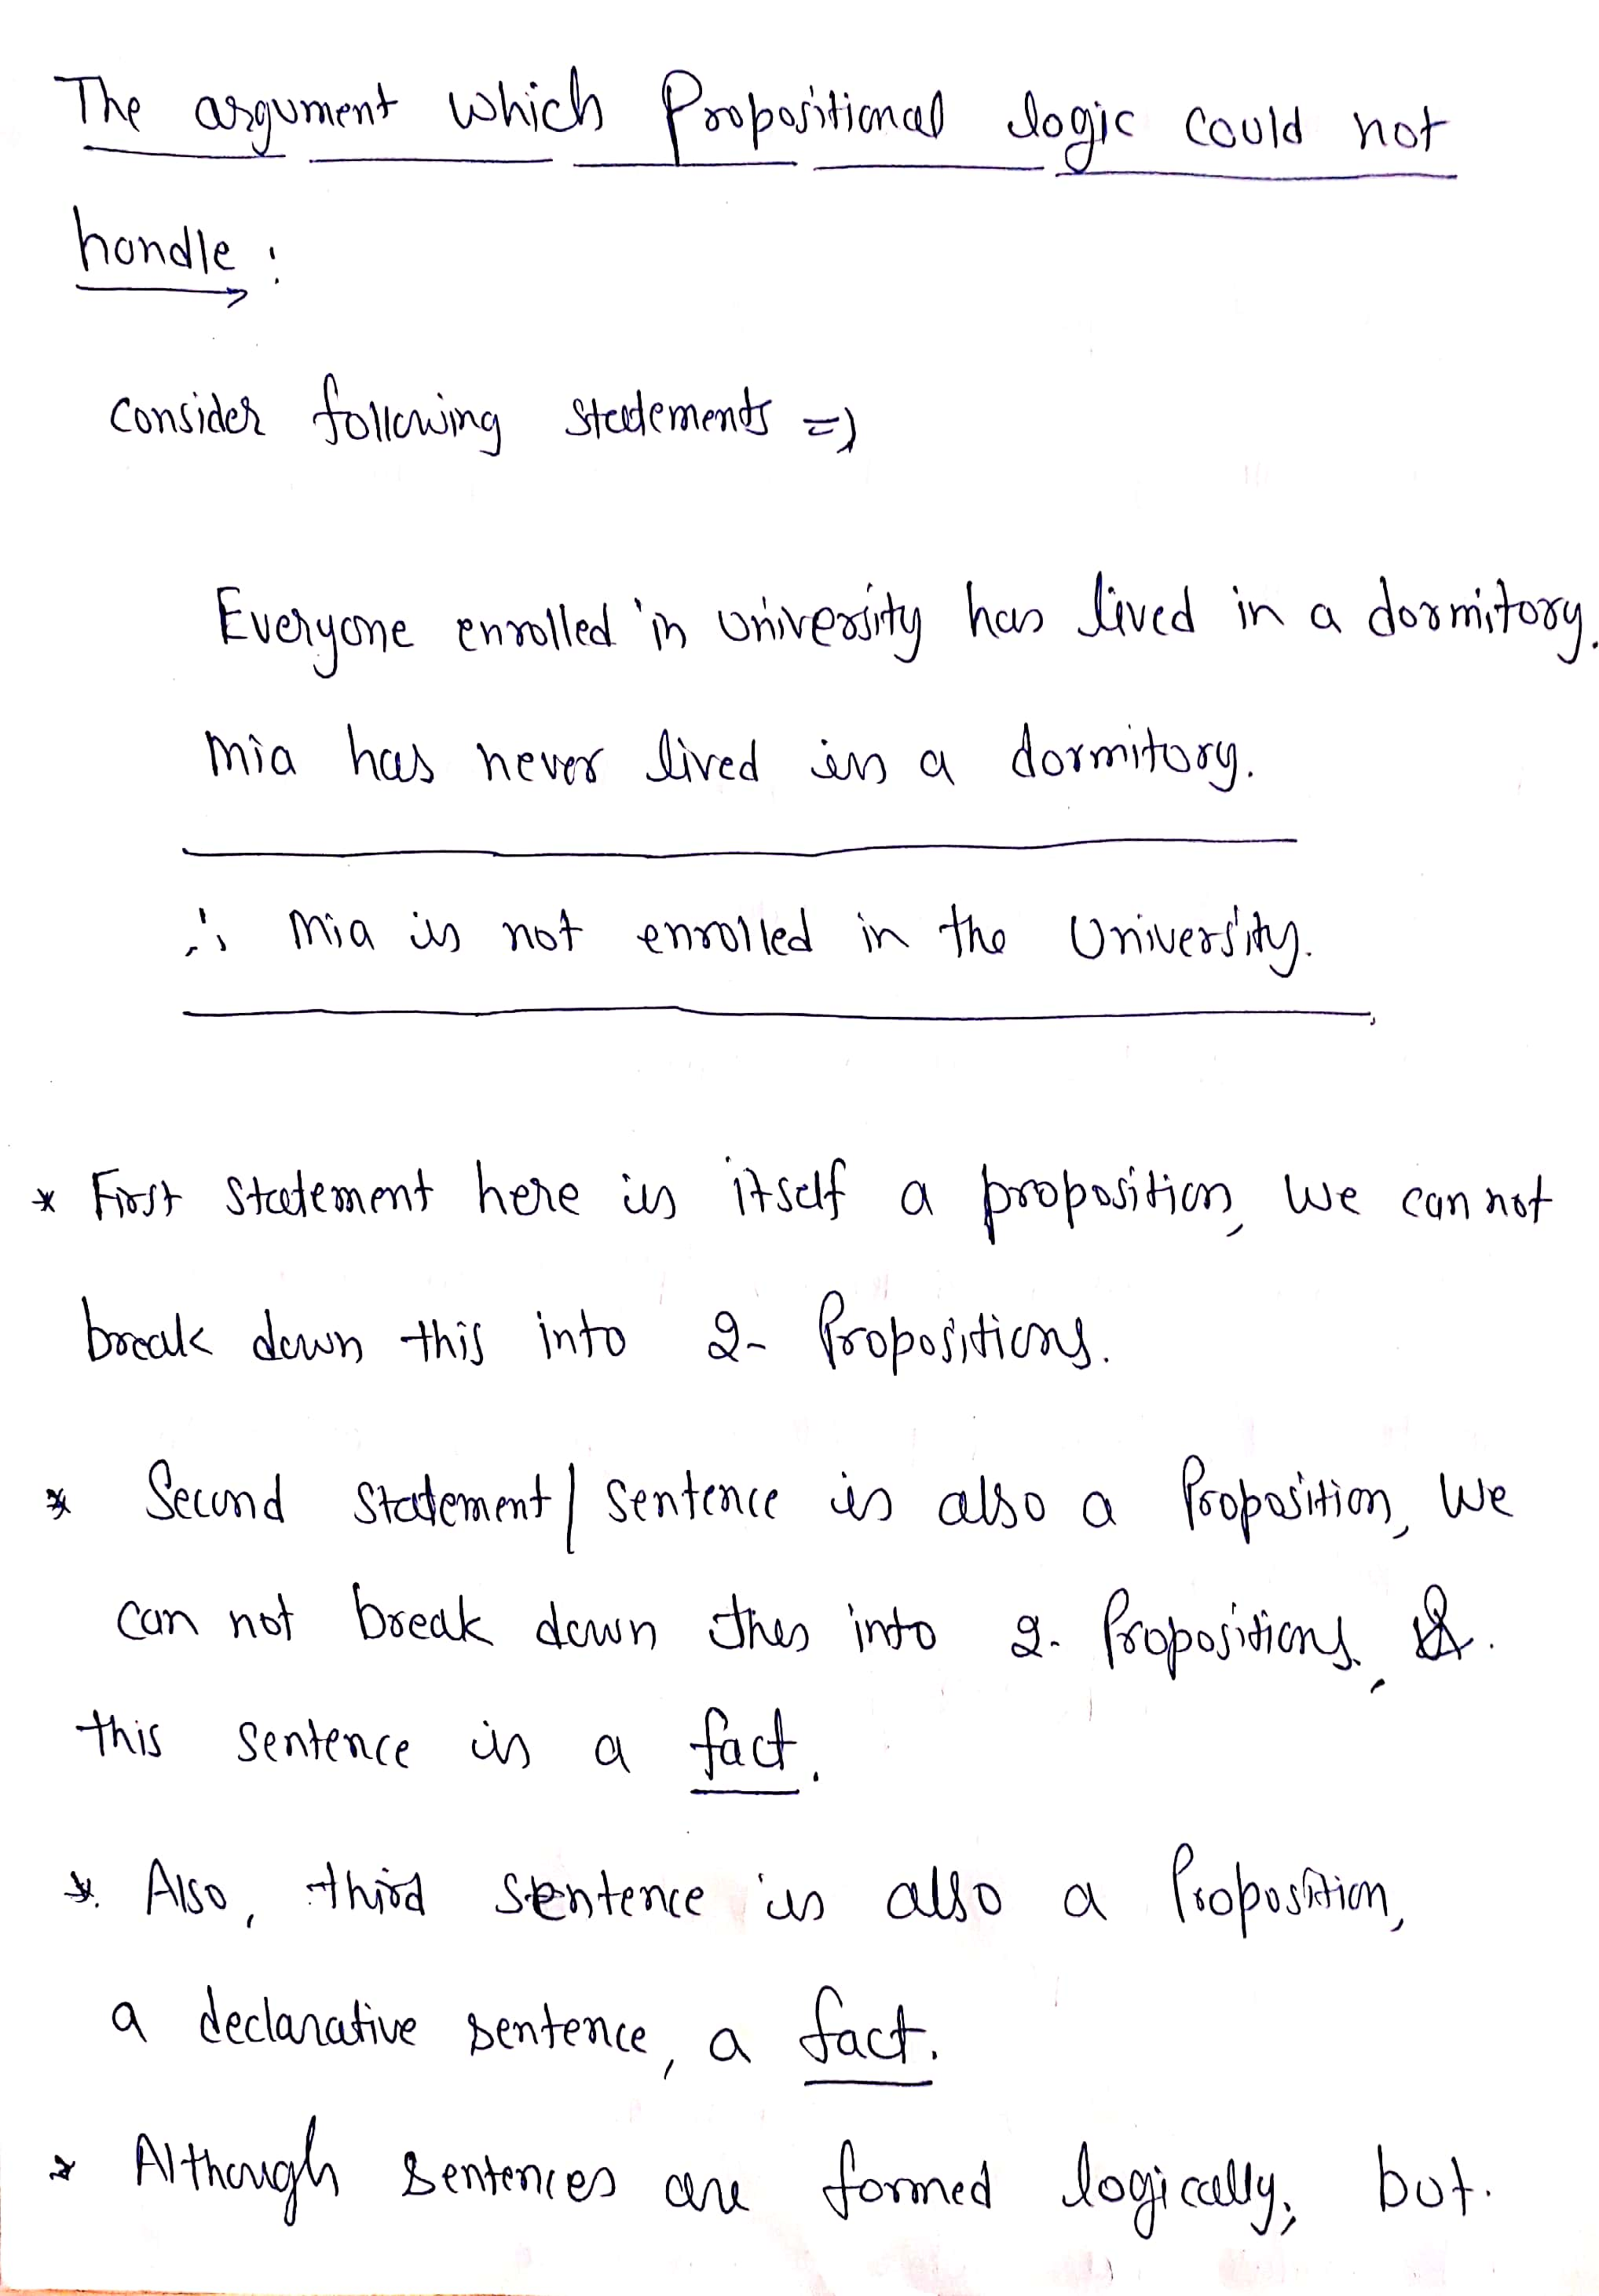 The argument which Propositional logic could not
handle :
consider following statements =)
Everyone enrolled in university has lived in a dormitory.
Mia has never lived in a dormitory.
∴ Mia is not enrolled in the University.
* First statement here is itself a proposition, We can not
break down this into 2- Propositions.
* Second statement/sentence is also a Proposition, We
can not break down this into 2- Propositions, &.
this sentence is a fact.
*. Also, third sentence is also a Proposition,
a declarative sentence, a fact.
* Although sentences are formed logically, but.